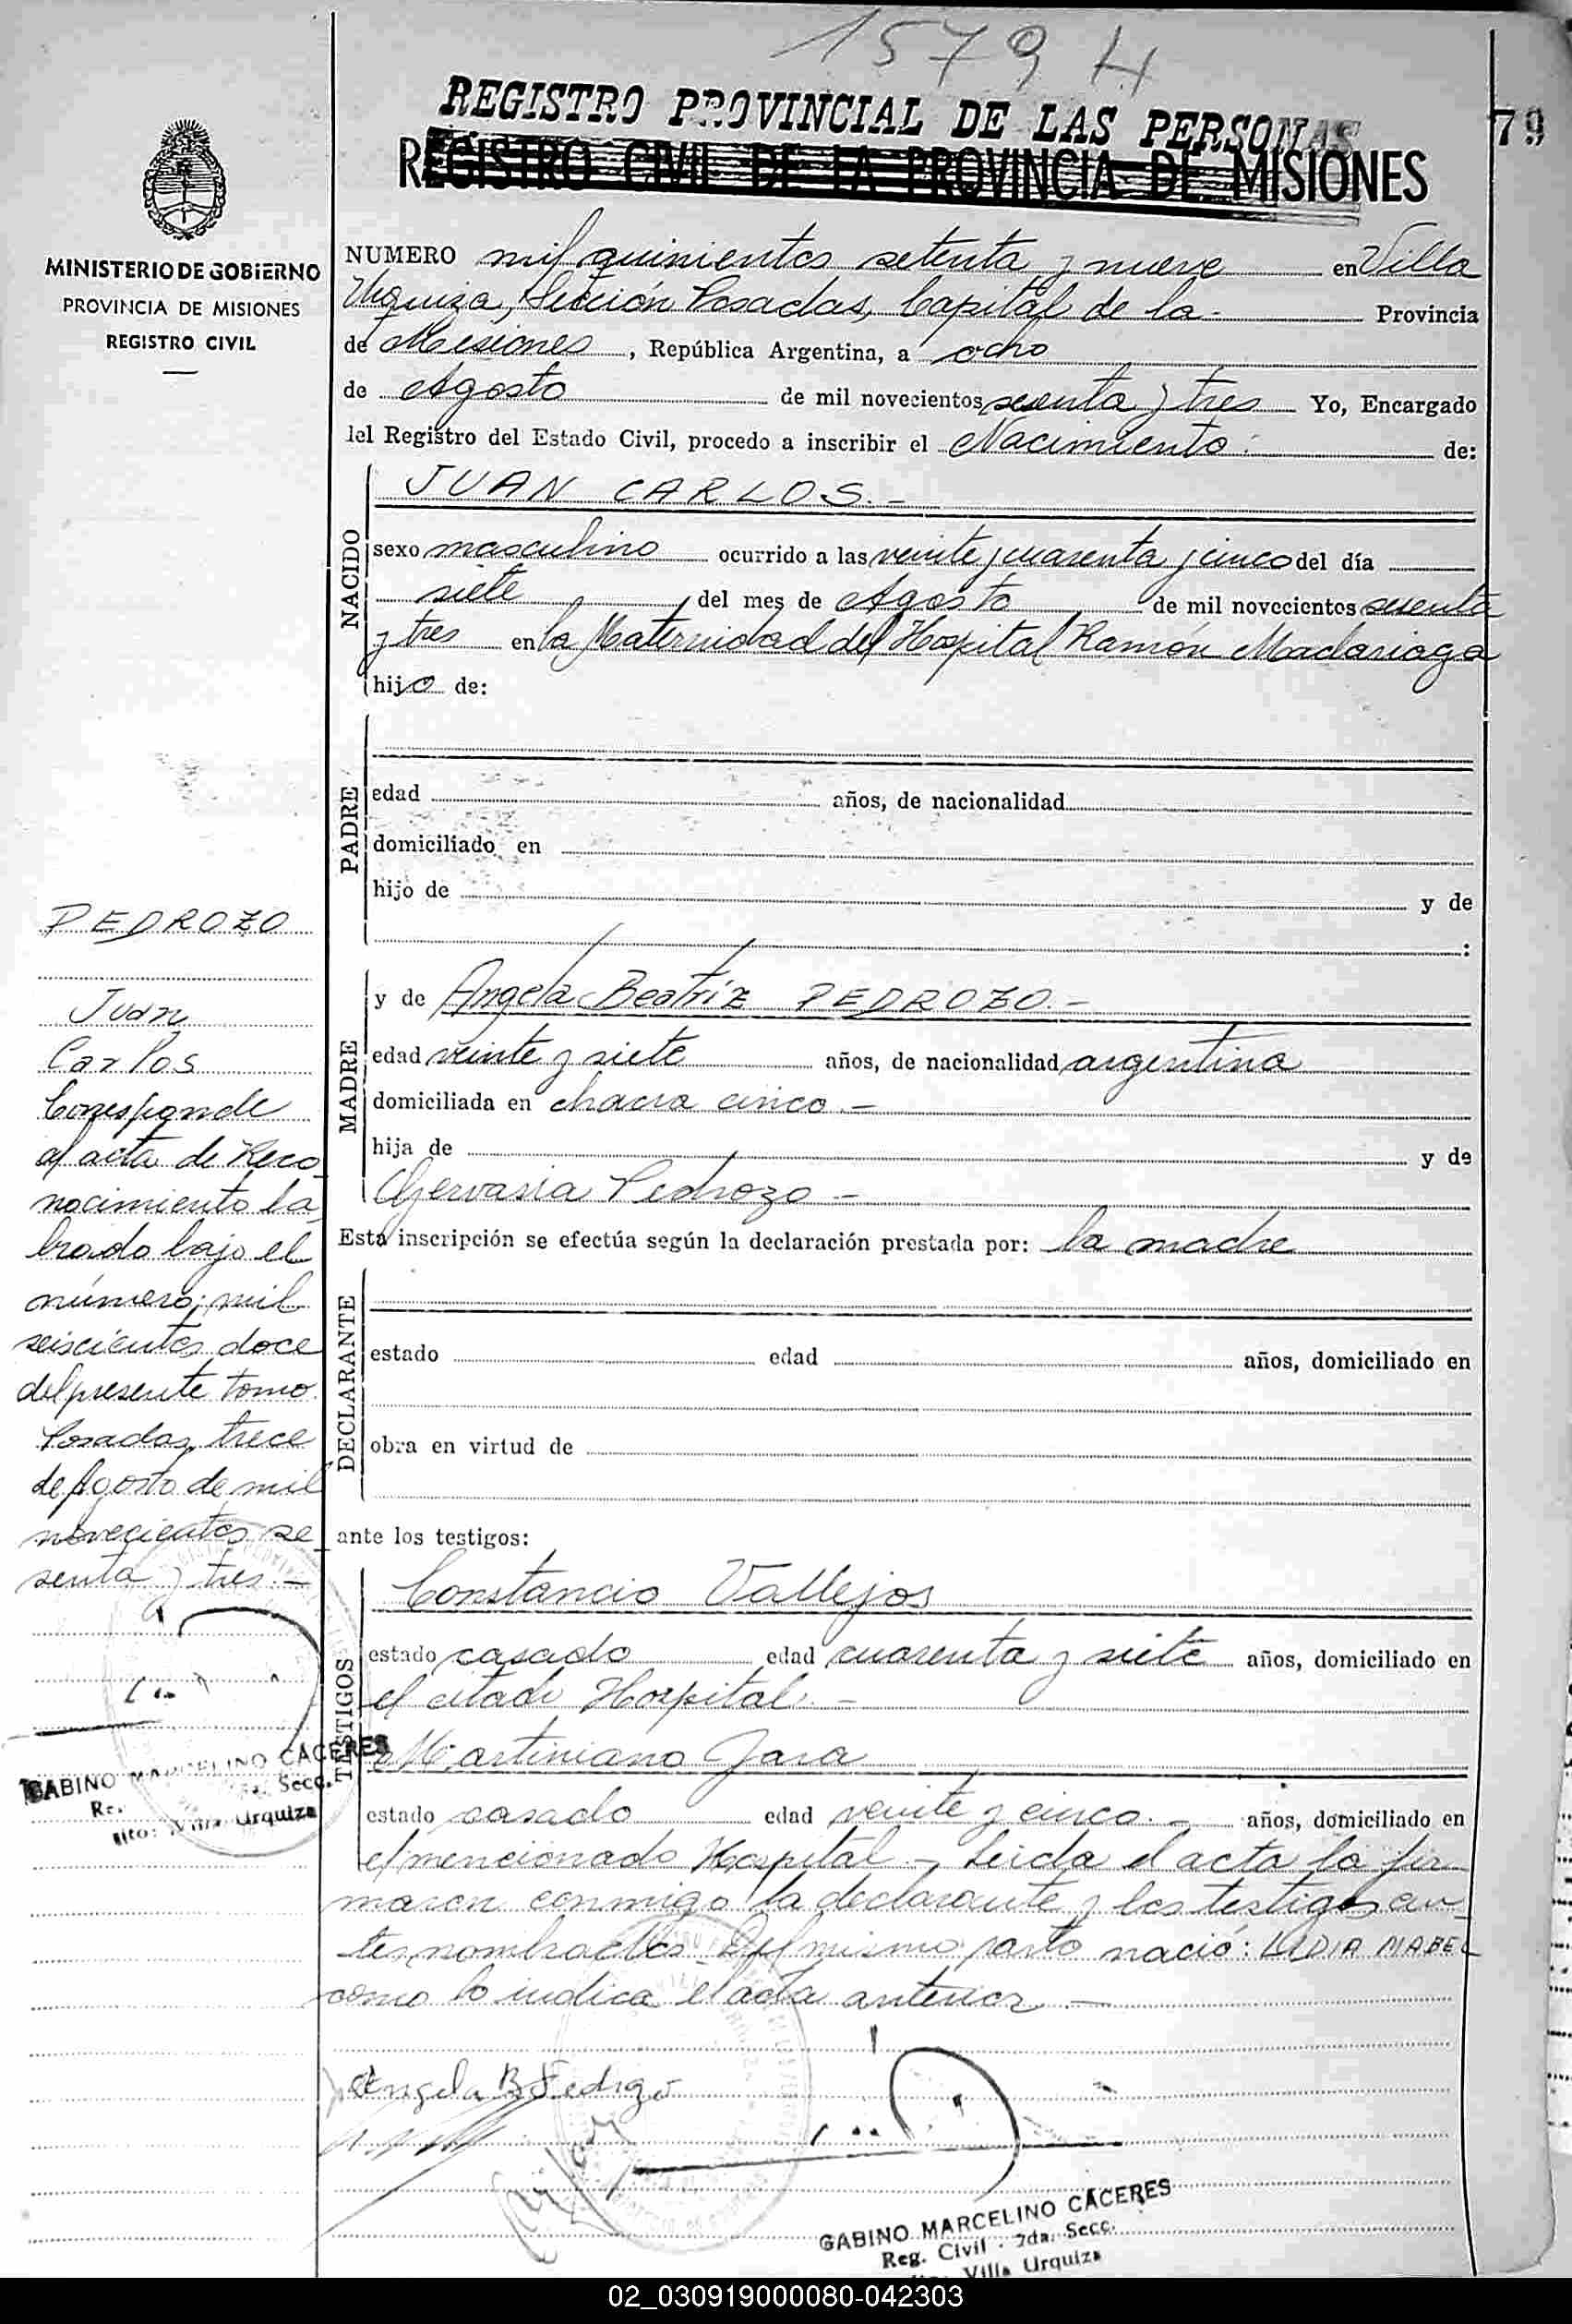 1579 H
REGISTRO PROVINCIAL DE LAS PERSONAS
79
REGISTRO CIVIL DE LA PROVINCIA DE MISIONES
MINISTERIO DE GOBIERNO
PROVINCIA DE MISIONES
REGISTRO CIVIL
NUMERO mil quinientos setenta y nueve en Villa
Urquiza, Sección Posadas, Capital de la.- Provincia
de Misiones, República Argentina, a ocho
de Agosto de mil novecientos sesenta y tres Yo, Encargado
del Registro del Estado Civil, procedo a inscribir el Nacimiento: de:
NACIDO
JUAN CARLOS.-
sexo masculino ocurrido a las veinte y cuarenta y cinco del día
siete del mes de Agosto de mil novecientos sesenta
y tres en la Maternidad del Hospital Ramón Madariaga
hijo de:
PADRE
edad años, de nacionalidad
domiciliado en
hijo de y de
:
MADRE
y de Angela Beatríz PEDROZO.-
edad veinte y siete años, de nacionalidad argentina
domiciliada en chacra cinco.-
hija de y de
Gervasia Pedrozo-
Esta inscripción se efectúa según la declaración prestada por: la madre
DECLARANTE
estado edad años, domiciliado en
obra en virtud de
ante los testigos:
TESTIGOS
Constancio Vallejos
estado casado edad cuarenta y siete años, domiciliado en
el citado Hospital.-
Martiniano Jara
estado casado edad veinte y cinco.- años, domiciliado en
el mencionado Hospital.- Leida el acta la fir-
maron conmigo la declarante y los testigos an-
tes nombrados. Del mismo parto nació: LIDIA MABEL
como lo indica el acta anterior.-
Angela B Pedrozo
GABINO MARCELINO CACERES
Reg. Civil 2da. Secc.
Villa Urquiza
PEDROZO
Juan
Carlos
Corresponde
al acta de Reco-
nocimiento la-
brado bajo el
número; mil
seiscientos doce
del presente tomo.
Posadas, trece
de Agosto de mil
novecientos se-
senta y tres.-
GABINO MARCELINO CACERES
Secc.
Villa Urquiza
02_030919000080-042303